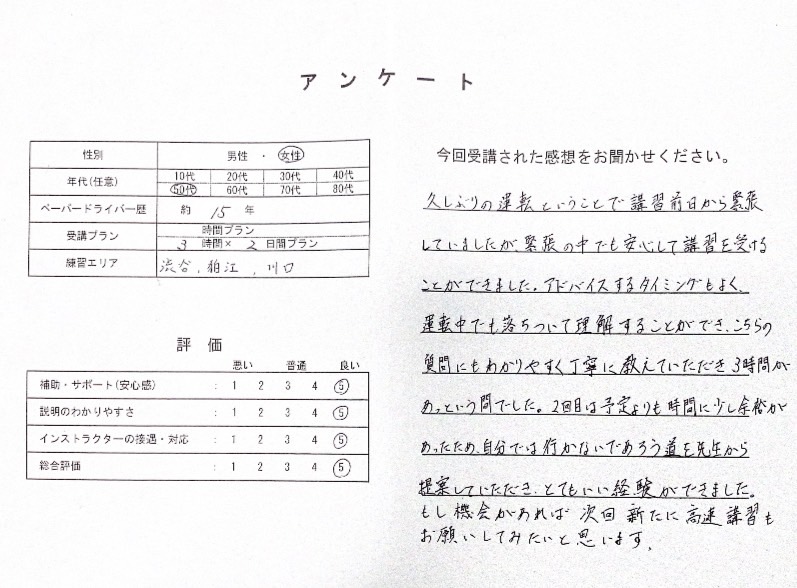 アンケート
性別 男性 ・ 女性
年代(任意) 10代 20代 30代 40代
50代 60代 70代 80代
ペーパードライバー歴 約 15 年
受講プラン 時間プラン
3 時間× 2 日間プラン
練習エリア 渋谷、狛江、川口
評価
悪い 普通 良い
補助・サポート(安心感) : 1 2 3 4 5
説明のわかりやすさ : 1 2 3 4 5
インストラクターの接遇・対応 : 1 2 3 4 5
総合評価 : 1 2 3 4 5
今回受講された感想をお聞かせください。
久しぶりの運転ということで講習前日から緊張
していましたが緊張の中でも安心して講習を受ける
ことができました。アドバイスするタイミングもよく、
運転中でも落ちついて理解することができ、こちらの
質問にもわかりやすく丁寧に教えていただき3時間が
あっという間でした。2回目は予定よりも時間に少し余裕が
あったため、自分では行かないであろう道を先生から
提案していただき、とてもいい経験ができました。
もし機会があれば次回新たに高速講習も
お願いしてみたいと思います。